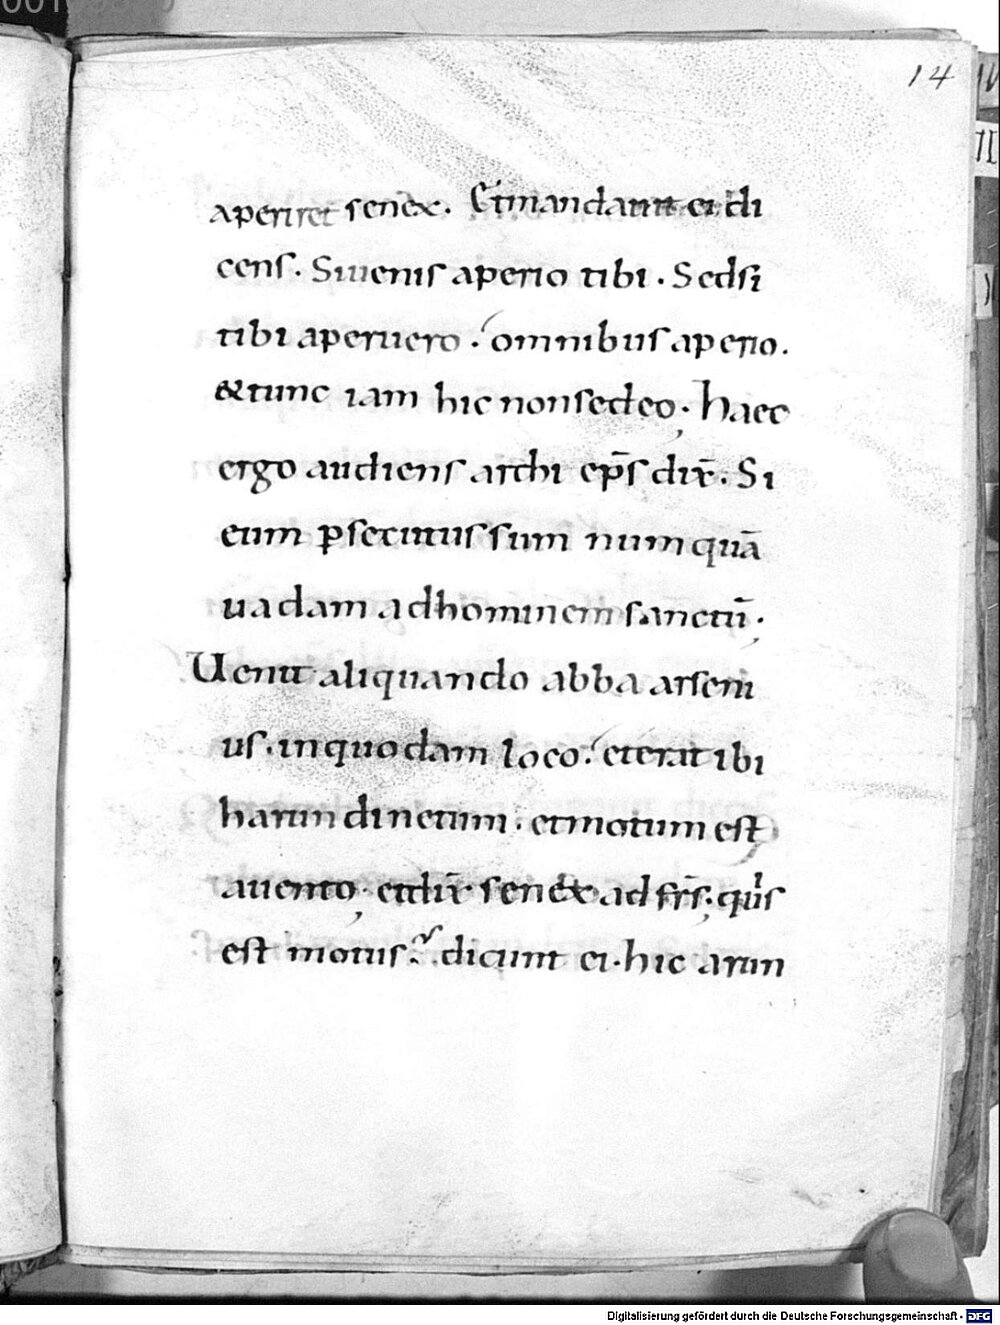 14
aperiret senex. Et mandauit ei di
cens. Si uenis aperio tibi. Sed si
tibi aperuero. omnibus aperio.
& tunc iam hic non sedeo; haec
ergo audiens archi ep̄s dix̄. Si
eum ꝑsecutus sum numquā
uadam ad hominem sanctū;
Uenit aliquando abba arseni
us. in quodam loco. et erat ibi
harundinetum. et motum est
a uento; et dix̄ senex ad fr̄s; quis
est motus? dicunt ei. hic arun
Digitalisierung gefördert durch die Deutsche Forschungsgemeinschaft - DFG